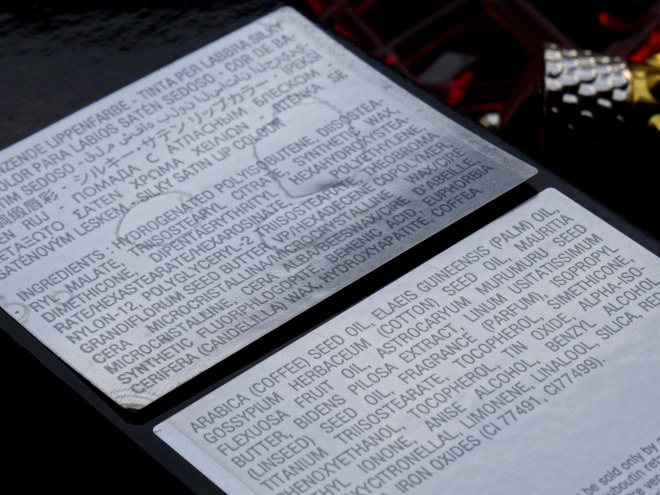 LENDE LIPPENFARBE - TINTA PER LABBRA SILKY
OLOR PARA LABIOS SATÉN SEDOSO - COR DE BA-
TIM SEDOSO
シルキーサテン リップカラー
EN RUJ - ПОМАДА С АТЛАСНЫМ БЛЕСКОМ -
ΜΕΤΑΞΩΤΟ ΣΑΤΕΝ ΧΡΩΜΑ ΧΕΙΛΙΩΝ - RTĚNKA SE
SATÉNOVÝM LESKEM - SILKY SATIN LIP COLOUR
INGREDIENTS: HYDROGENATED POLYISOBUTENE, DIISOSTEA-
RYL MALATE, TRIISOSTEARYL CITRATE, SYNTHETIC WAX,
DIMETHICONE, DIPENTAERYTHRITYL HEXAHYDROXYSTEA-
RATE/HEXASTEARATE/HEXAROSINATE, POLYETHYLENE,
NYLON-12, POLYGLYCERYL-2 TRIISOSTEARATE, THEOBROMA
GRANDIFLORUM SEED BUTTER, VP/HEXADECENE COPOLYMER,
CERA MICROCRISTALLINA/MICROCRYSTALLINE WAX/CIRE
MICROCRISTALLINE, CERA ALBA/BEESWAX/CIRE D'ABEILLE,
SYNTHETIC FLUORPHLOGOPITE, BEHENIC ACID, EUPHORBIA
CERIFERA (CANDELILLA) WAX, HYDROXYAPATITE, COFFEA
ARABICA (COFFEE) SEED OIL, ELAEIS GUINEENSIS (PALM) OIL,
GOSSYPIUM HERBACEUM (COTTON) SEED OIL, MAURITIA
FLEXUOSA FRUIT OIL, ASTROCARYUM MURUMURU SEED
BUTTER, BIDENS PILOSA EXTRACT, LINUM USITATISSIMUM
(LINSEED) SEED OIL, FRAGRANCE (PARFUM), ISOPROPYL
TITANIUM TRIISOSTEARATE, TOCOPHEROL, SIMETHICONE,
PHENOXYETHANOL, TOCOPHEROL, TIN OXIDE, ALPHA-ISO-
HYL IONONE, ANISE ALCOHOL, BENZYL ALCOHOL,
XYCITRONELLAL, LIMONENE, LINALOOL, SILICA, RED
IRON OXIDES (CI 77491, CI77499).
be sold only by